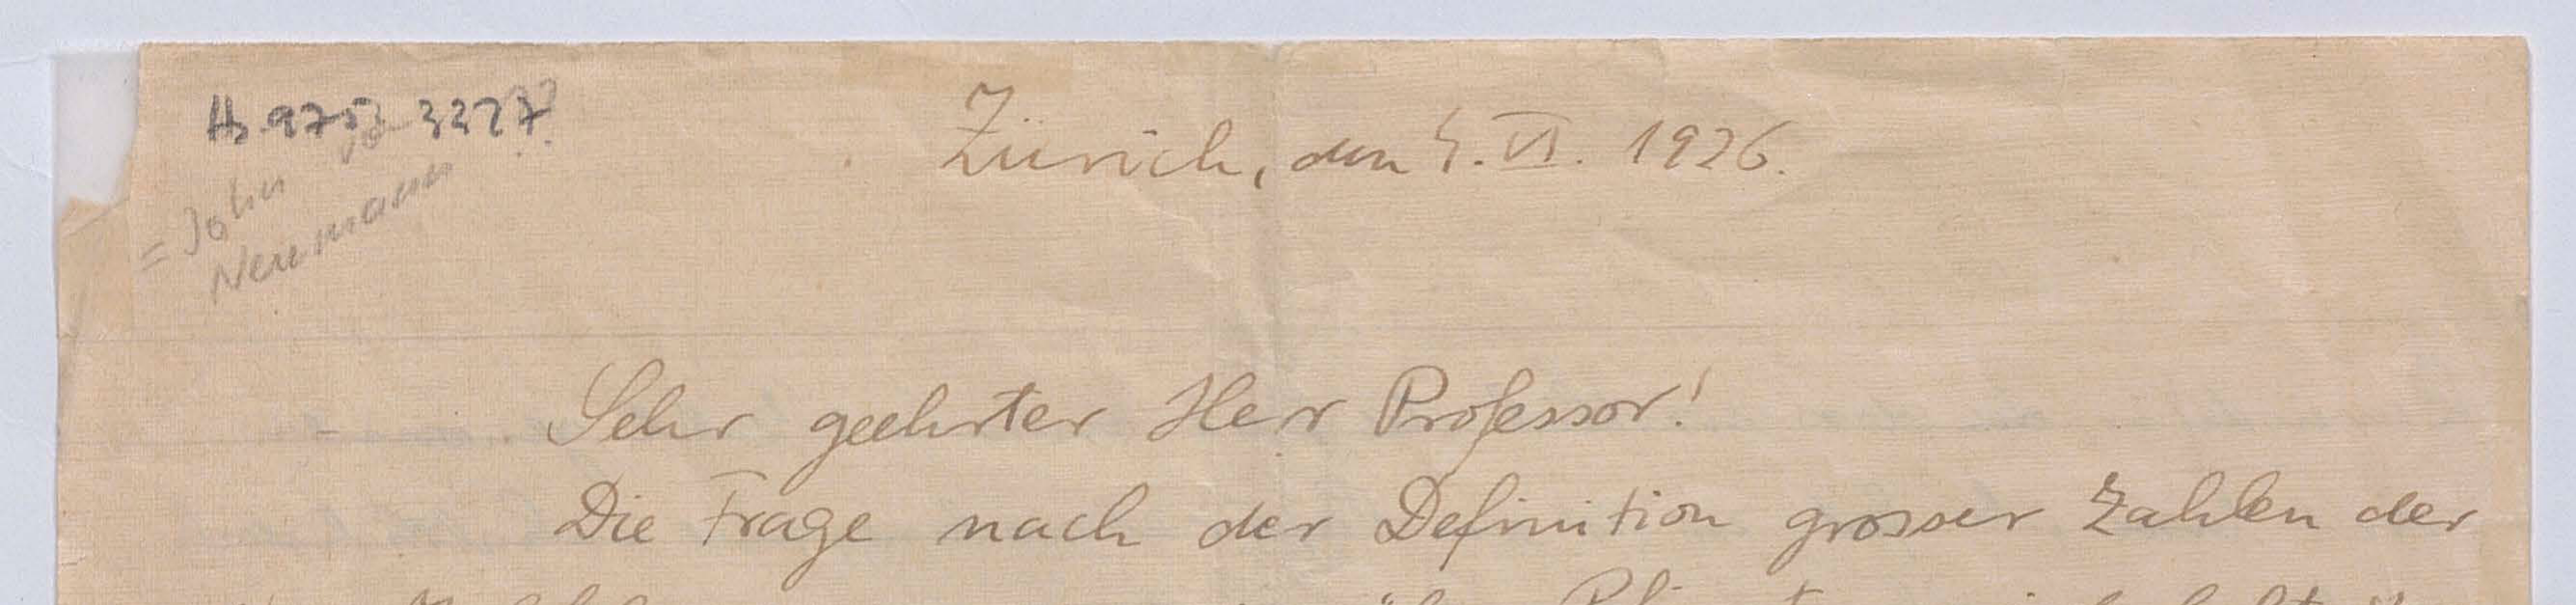 Hs 975: 3227
= John v.
Neumann
Zürich, den 4. VI. 1926.
Sehr geehrter Herr Professor!
Die Frage nach der Definition grosser Zahlen der